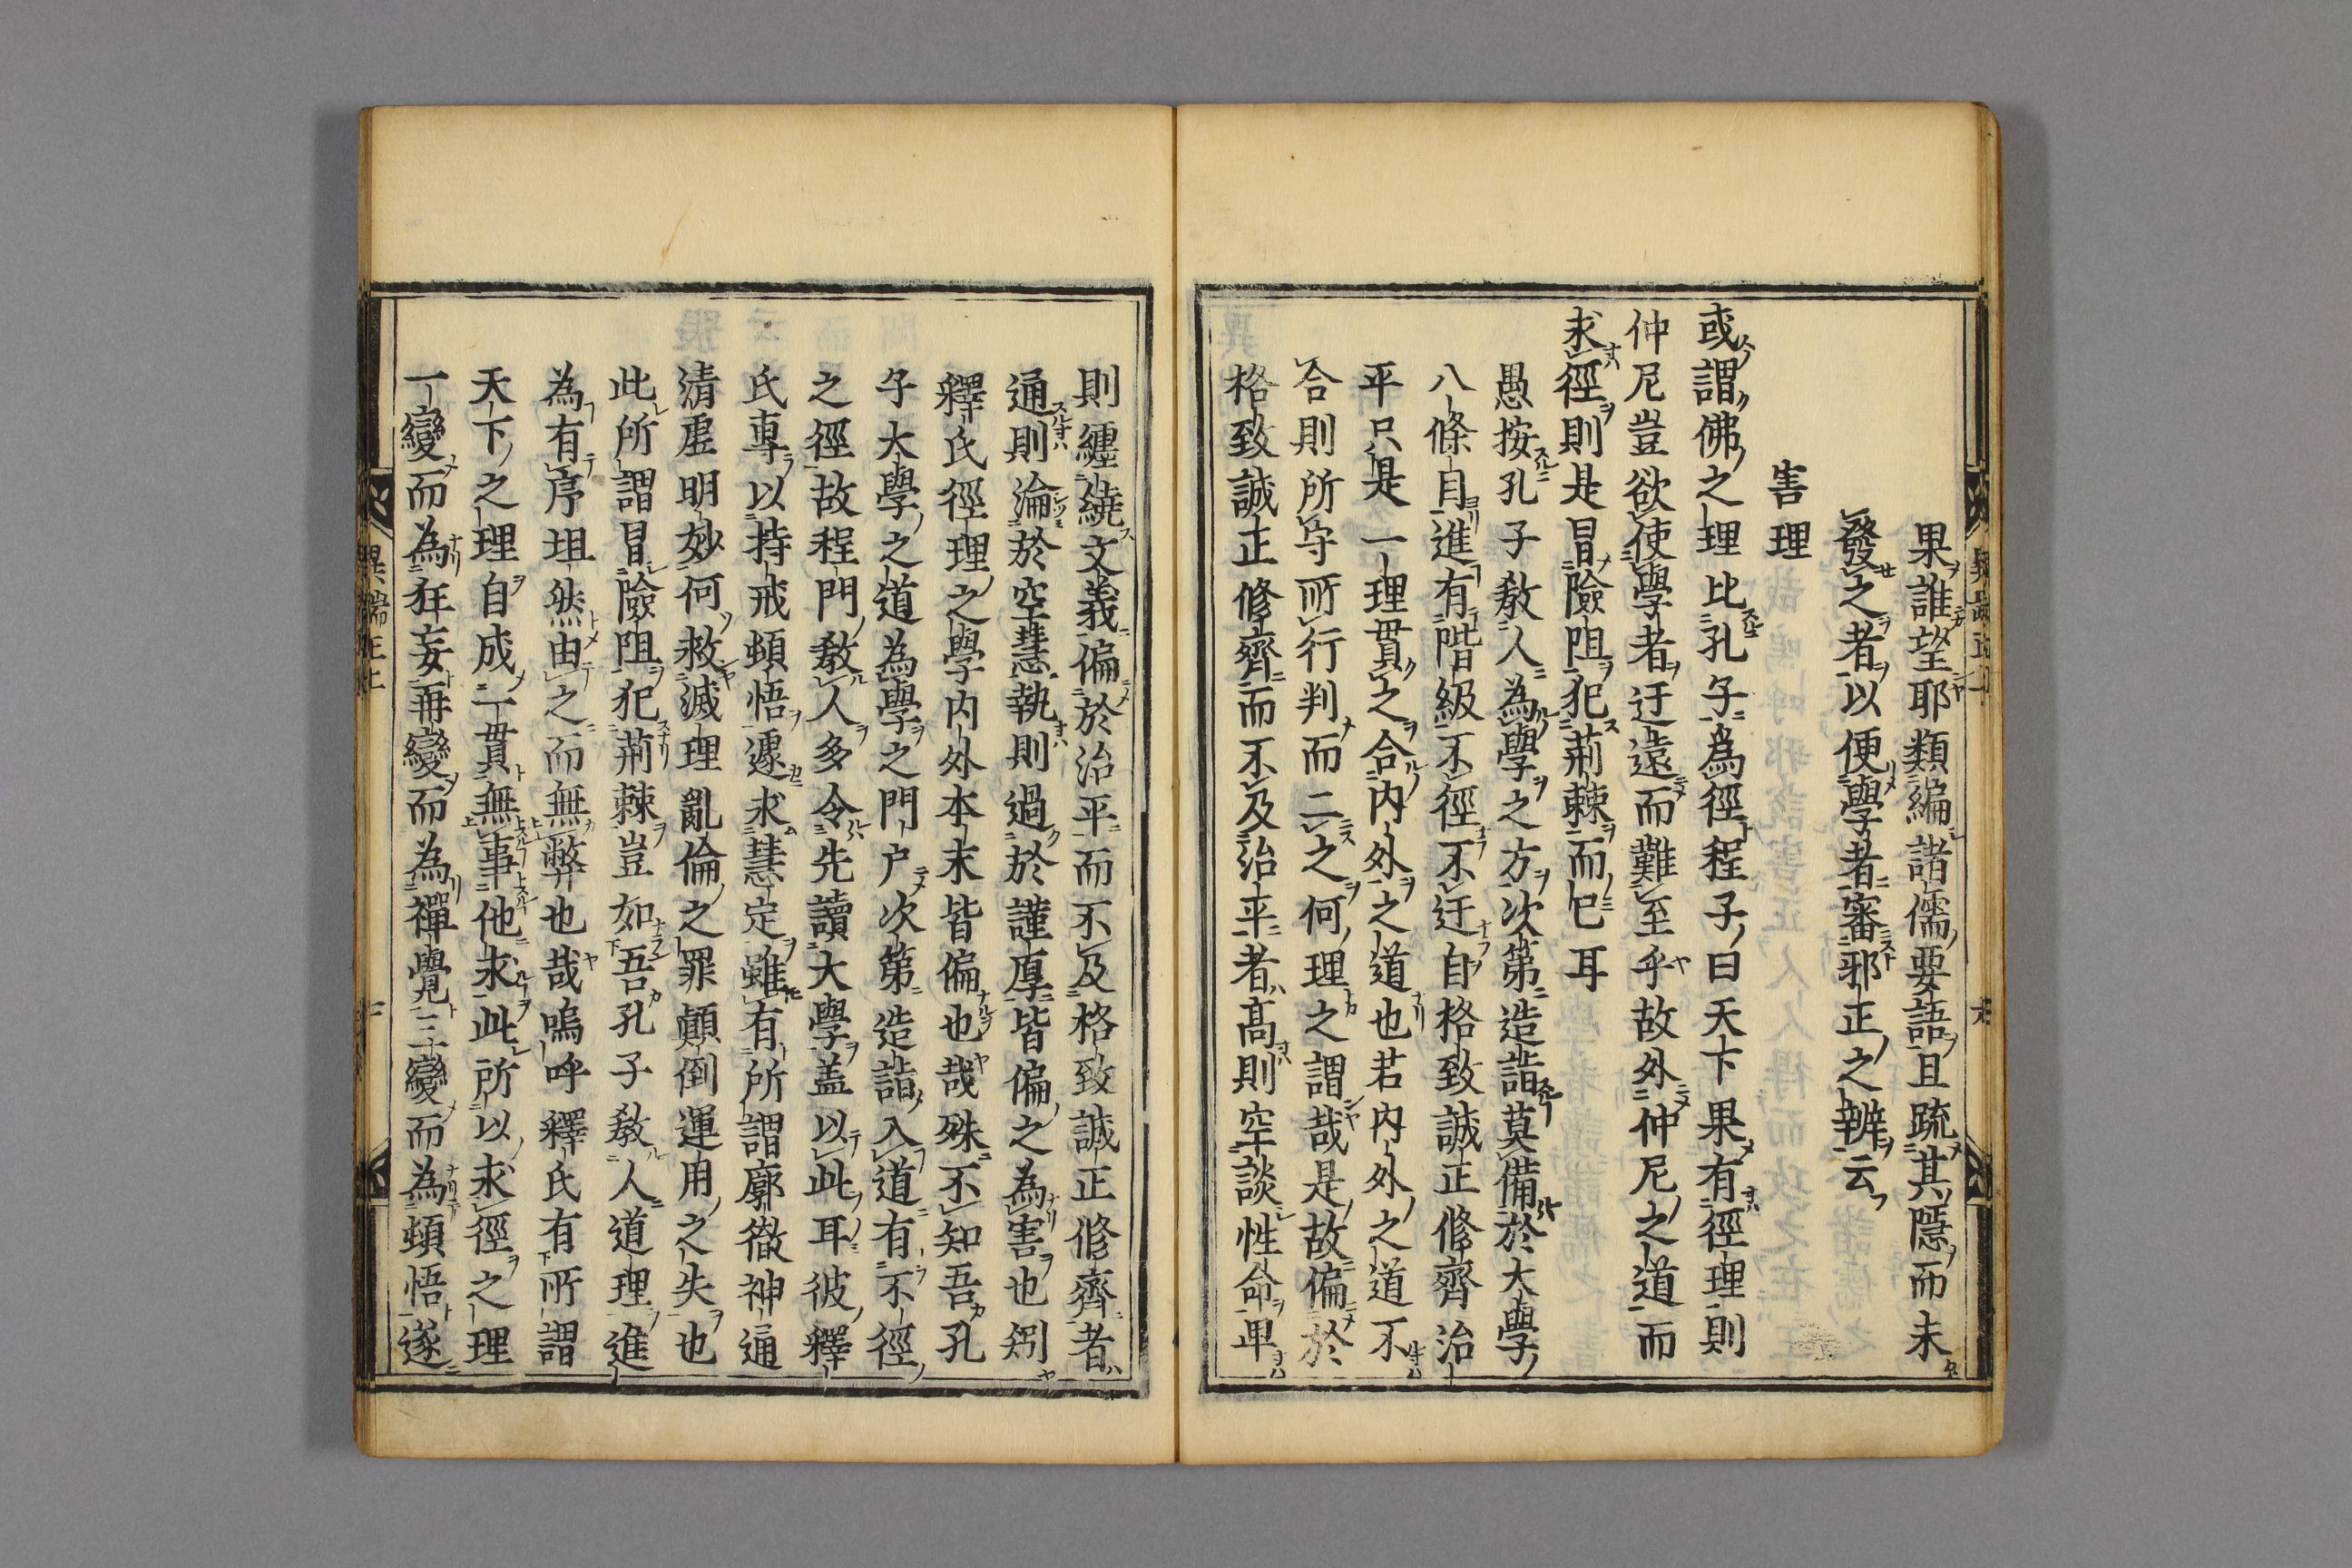 果誰望耶類編諸儒要語且疏其隱而未
發之者以便學者審邪正之辨云
害理
或謂佛之理比孔子爲徑程子曰天下果有徑理則
仲尼豈欲使學者迂遠而難至乎故外仲尼之道而
求徑則是冒險阻犯荊棘而已耳
愚按孔子教人為學之方次第造詣莫備於大學
八條自進有階級不徑不迂自格致誠正修齊治
平只是一理貫之合內外之道也若內外之道不
合則所守所行判而二之何理之謂哉是故偏於
格致誠正修齊而不及治平者高則空談性命卑
則纏繞文義偏於治平而不及格致誠正修齊者
通則淪於空慧執則過於謹厚皆偏之為害也矧
釋氏徑理之學内外本末皆偏也哉殊不知吾孔
子大學之道為學之門户次第造詣入道有不徑
之徑故程門教人多令先讀大學盖以此耳彼釋
氏專以持戒頓悟遽求慧定雖有所謂廓徹神通
清虛明妙何救滅理亂倫之罪顛倒運用之失也
此所謂冒險阻犯荊棘豈如吾孔子教人道理進
為有序坦然由之而無弊也哉嗚呼釋氏有所謂
天下之理自成一貫無事他求此所以求徑之理
一變而為狂妄再變而為禪覺三變而為頓悟遂
異端正上